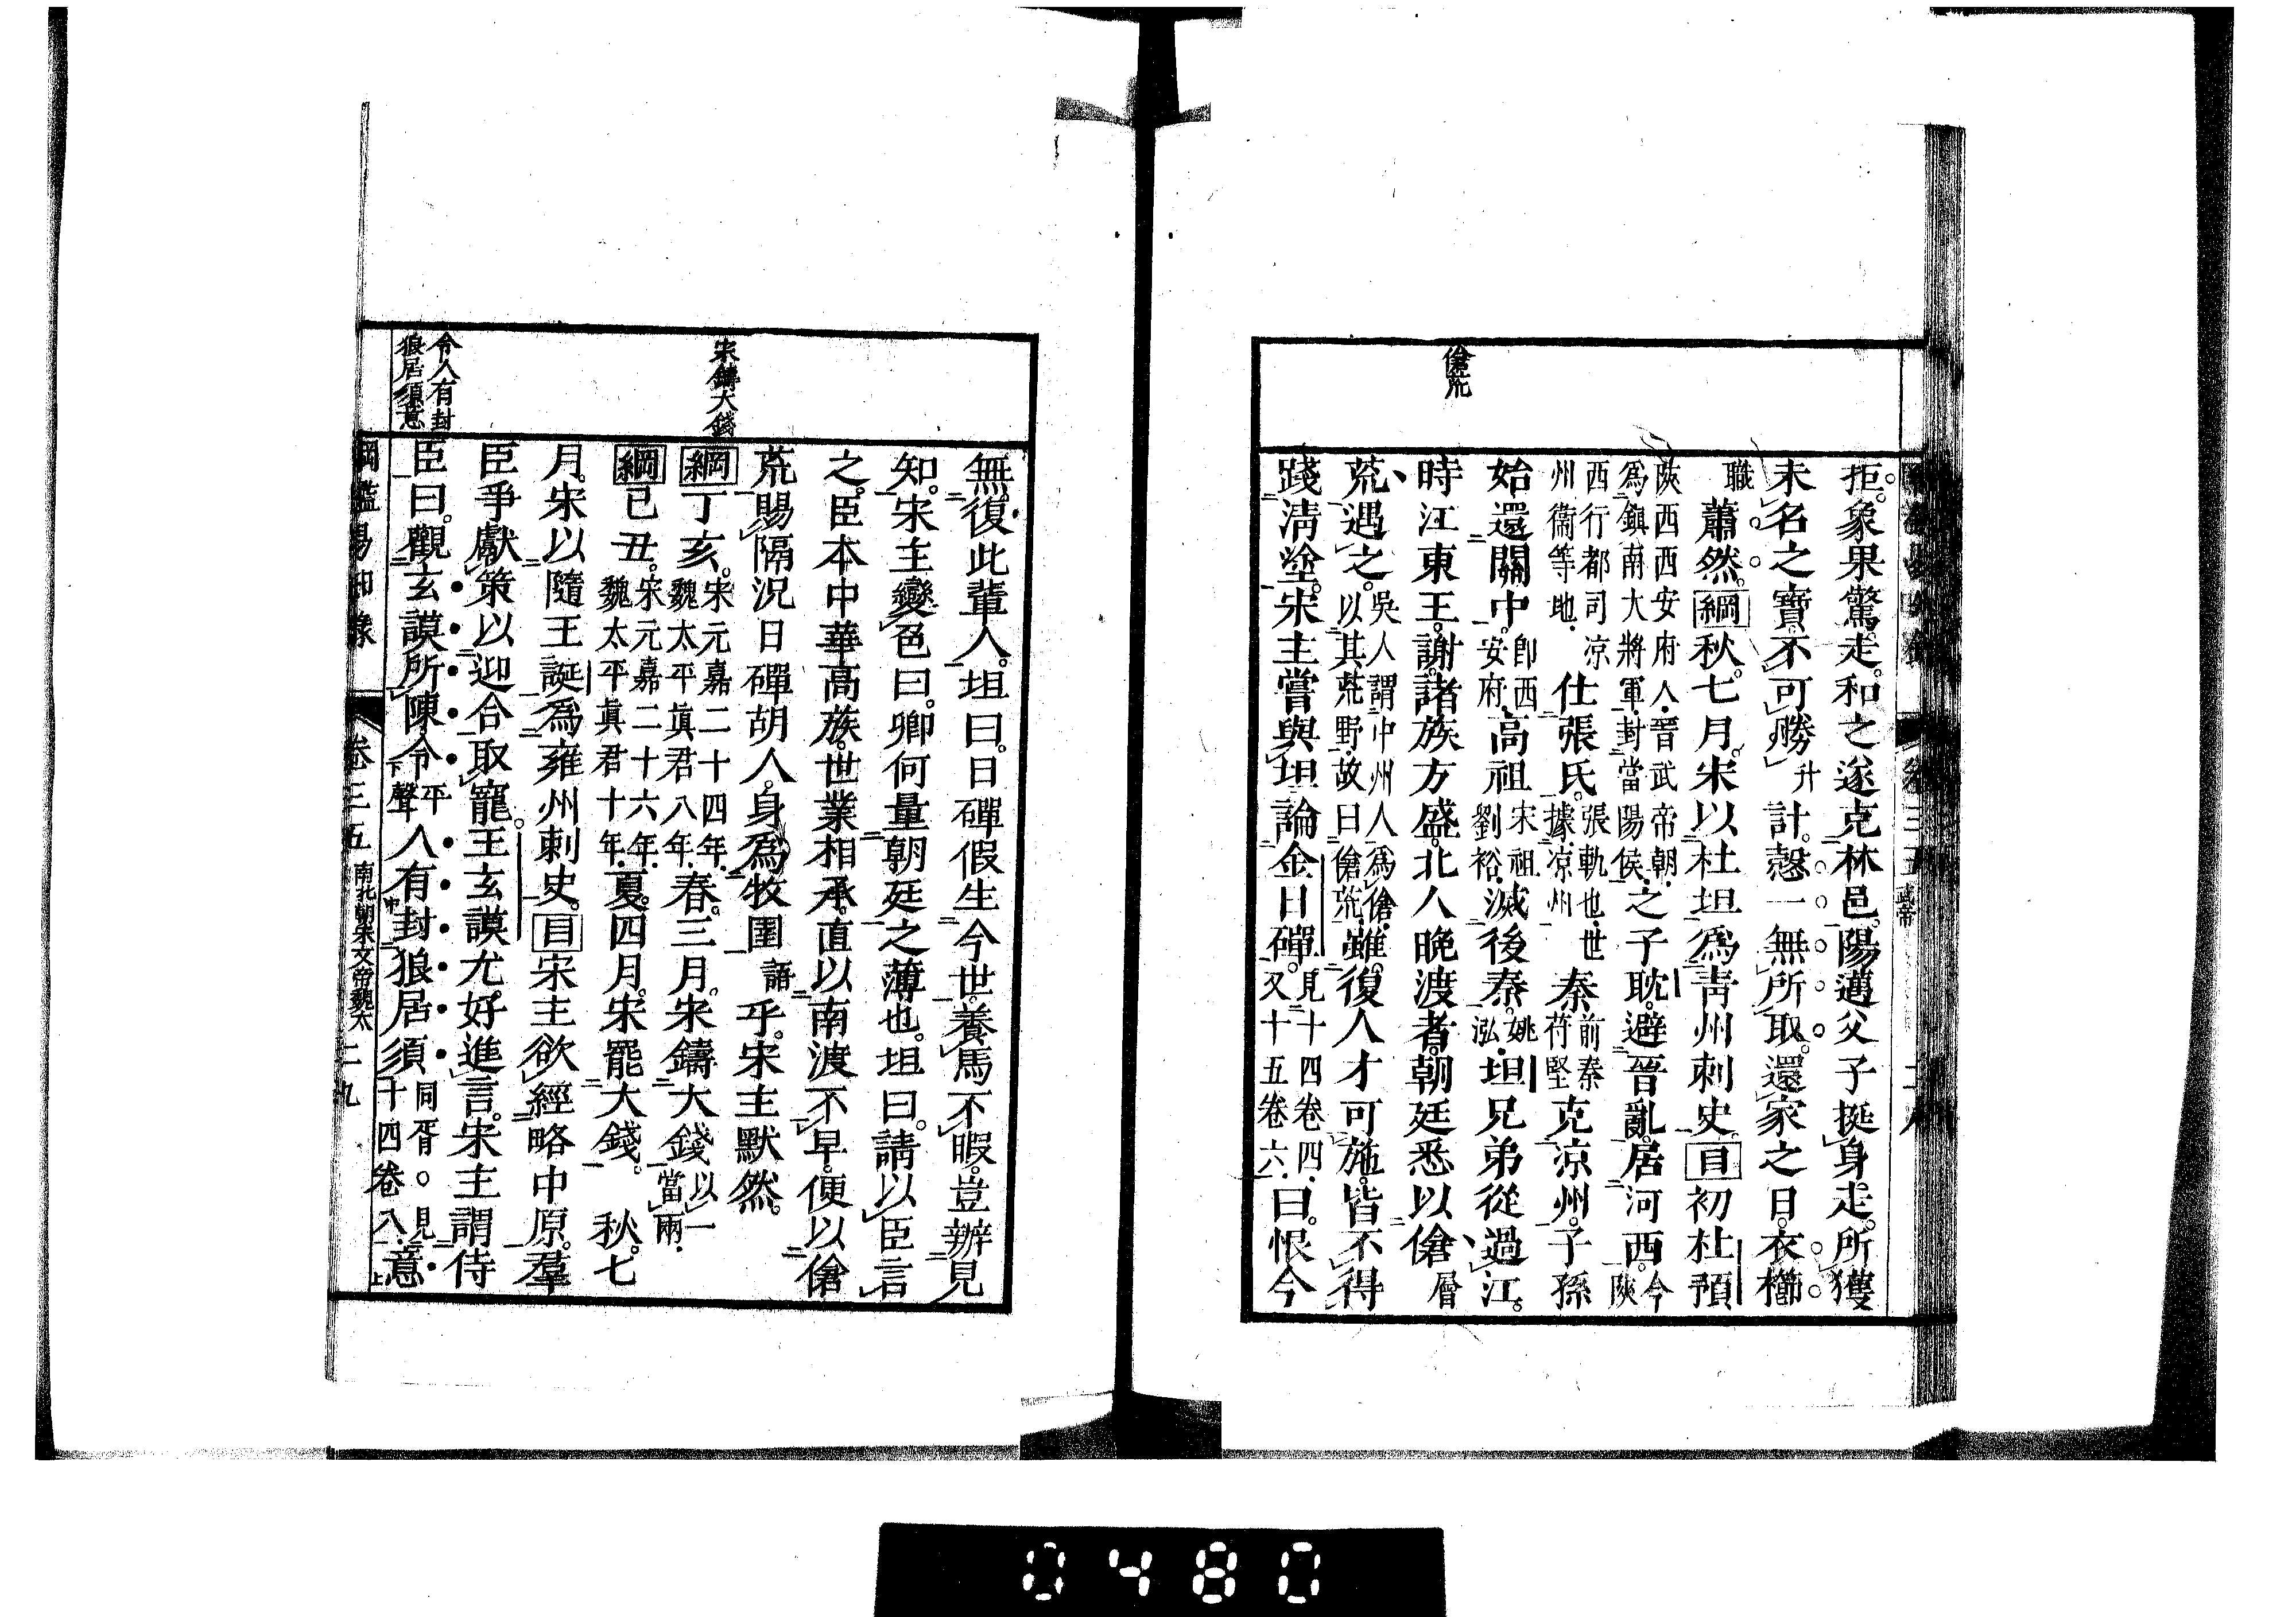 傖荒
拒。象果驚走。和之遂克林邑。陽邁父子挺身走。所獲
未名之寶。不可勝升計。愨一無所取。還家之日。衣櫛
職蕭然。綱秋。七月。宋以杜坦爲靑州刺史。目初杜預
陝西西安府人。晉武帝朝。爲鎭南大將軍。封當陽侯。之子耽。避晉亂。居河西。今陝
西行都司涼州衞等地。仕張氏。張軌也。世據涼州。秦前秦苻堅克涼州。子孫
始還關中。卽西安府。高祖宋祖劉裕。滅後秦。姚泓。坦兄弟從過江。
時江東王。謝。諸族方盛。北人晚渡者。朝廷悉以傖層
荒遇之。吳人謂中州人爲傖。以其荒野。故曰傖荒。雖復人才可施。皆不得
踐淸塗。宋主嘗與坦論金日磾。見十四卷四。又十五卷六。曰。恨今
宋鑄大錢
令人有封狼居須意
無復此輩人。坦曰。日磾假生今世。養馬不暇。豈辦見
知。宋主變色曰。卿何量朝廷之薄也。坦曰。請以臣言
之。臣本中華高族。世業相承。直以南渡不早。便以傖
荒賜隔。況日磾胡人。身爲牧圉語乎。宋主默然。
綱丁亥。宋元嘉二十四年。魏太平眞君八年。春。三月。宋鑄大錢。以一當兩。
綱己丑。宋元嘉二十六年。魏太平眞君十年。夏。四月。宋罷大錢。秋。七
月。宋以隨王誕爲雍州刺史。目宋主欲經略中原。羣
臣爭獻策以迎合取寵。王玄謨尤好進言。宋主謂侍
臣曰。觀玄謨所陳。令平聲人有封狼居須同胥。見十四卷八。意
綱鑑易知錄 卷三五 南北朝宋文帝魏太 二九